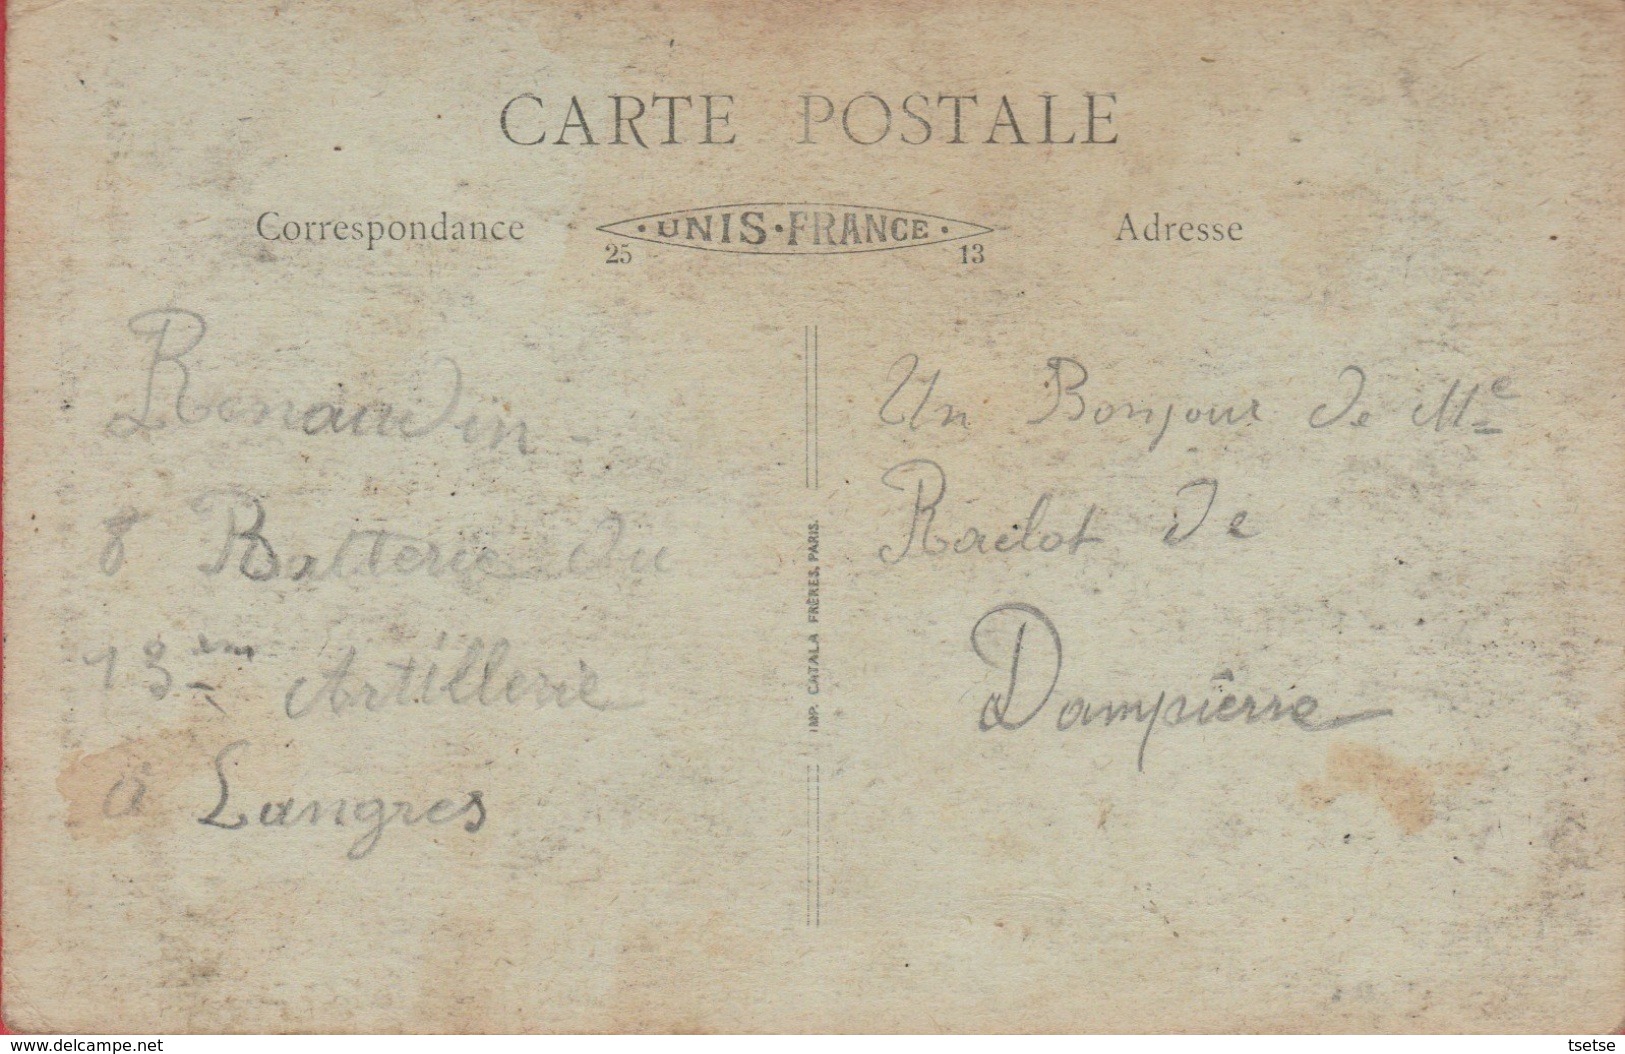 CARTE POSTALE
Correspondance
UNIS·FRANCE
25 13
Adresse
Renaudin
8 Batterie du
13em Artillerie
a Langres
IMP. CATALA FRÈRES, PARIS.
Un Bonjour de Me
de
Dampierre
delcampe.net
tsetse